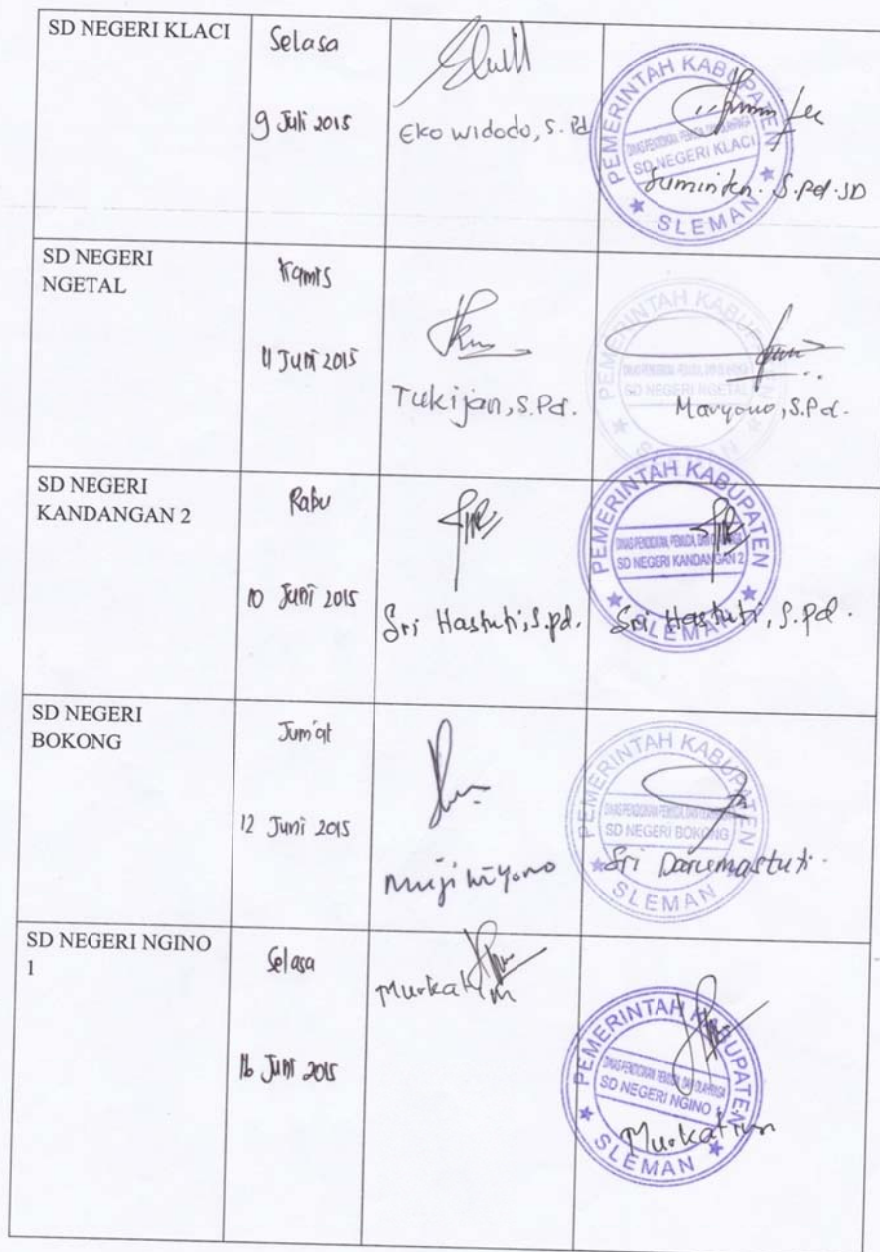 SD NEGERI KLACI
Selasa
9 Juli 2015
Eko widodo, S.Pd
PEMERINTAH KABUPATEN
DINAS PENDIDIKAN, PEMUDA, DAN OLAHRAGA
SD NEGERI KLACI
SLEMAN
Suminten. S.pd.SD
SD NEGERI
NGETAL
Kamis
11 Juni 2015
Tukijan, S.Pd.
PEMERINTAH KABUPATEN
DINAS PENDIDIKAN, PEMUDA, DAN OLAHRAGA
SD NEGERI NGETAL
Maryono, S.Pd.
SD NEGERI
KANDANGAN 2
Rabu
10 Juni 2015
Sri Hastuti, S.pd.
PEMERINTAH KABUPATEN
DINAS PENDIDIKAN, PEMUDA, DAN OLAHRAGA
SD NEGERI KANDANGAN 2
SLEMAN
Sri Hastuti, S.Pd.
SD NEGERI
BOKONG
Jum'at
12 Juni 2015
PEMERINTAH KABUPATEN
DINAS PENDIDIKAN, PEMUDA, DAN OLAHRAGA
SD NEGERI BOKONG
SLEMAN
Sri Darumastuti.
SD NEGERI NGINO
1
Selasa
16 Juni 2015
Murkatim
PEMERINTAH KABUPATEN
DINAS PENDIDIKAN, PEMUDA, DAN OLAHRAGA
SD NEGERI NGINO 1
SLEMAN